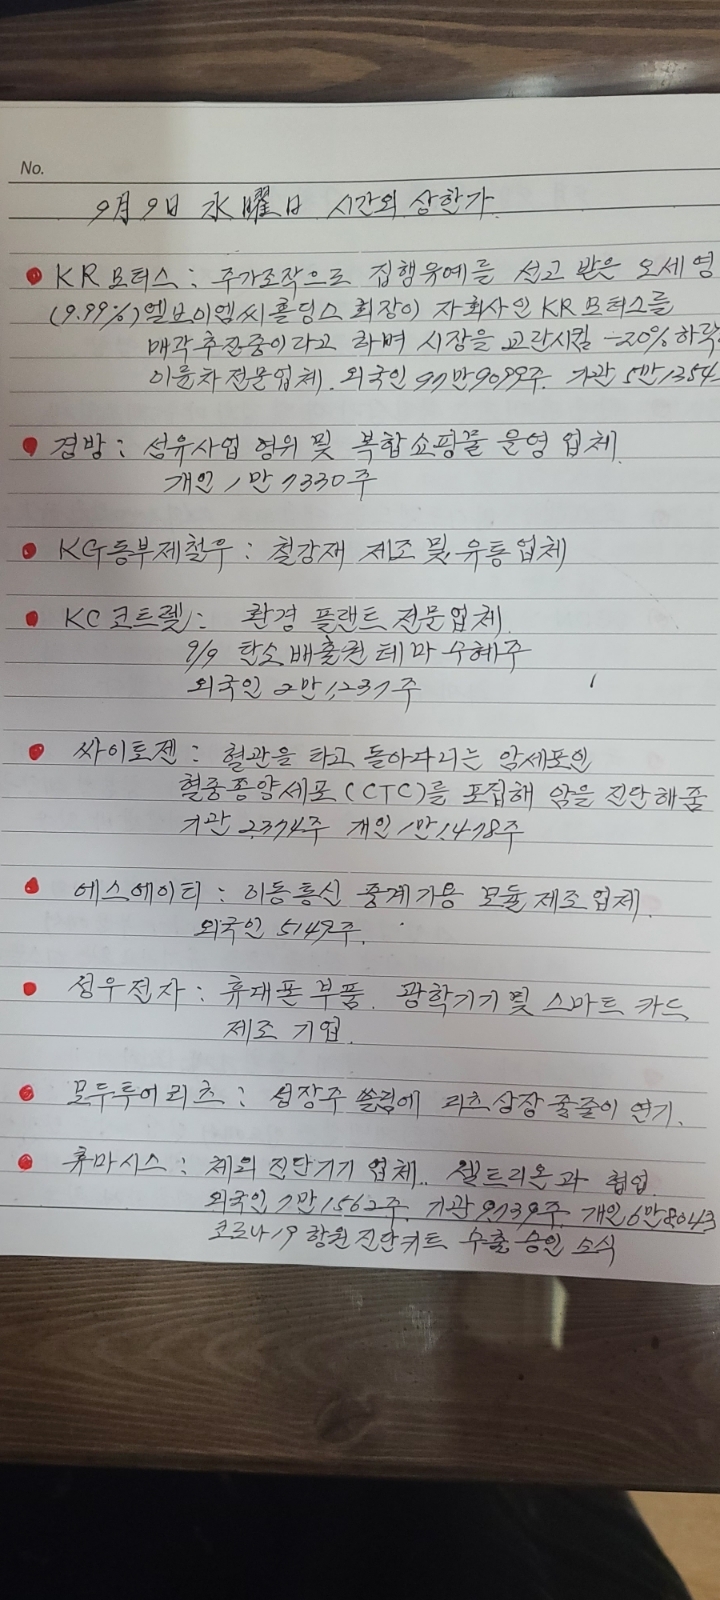 No.
9月9日 水曜日 시간외 상한가
KR모터스 : 주가조작으로 집행유예를 선고 받은 오세영
(9.99%) 엘브이엠씨홀딩스 회장이 자회사인 KR모터스를
매각추진중이라고 하며 시장을 교란시킴 -20% 하락
이륜차전문업체. 외국인 97만9099주. 기관 5만1354
경방 : 섬유사업 영위 및 복합쇼핑몰 운영 업체.
개인 1만7330주
KG동부제철우 : 철강재 제조 및 유통업체
KC코트렐 : 환경 플랜트 전문업체.
9/9 탄소배출권 테마 수혜주
외국인 2만1,237주
싸이토젠 : 혈관을 타고 돌아다니는 암세포인
혈중종양세포(CTC)를 포집해 암을 진단해줌
기관 2,374주 개인 1만1,478주
에스에이티 : 이동통신 중계기용 모듈 제조업체.
외국인 5149주.
성우전자 : 휴대폰 부품. 광학기기 및 스마트 카드
제조 기업.
모두투어리츠 : 성장주 쏠림에 리츠상장 줄줄이 연기.
휴마시스 : 체외 진단기기 업체.. 셀트리온과 협업.
외국인 7만1562주. 기관 9,139주. 개인 6만8043
코로나19 항원진단키트 수출 승인 소식